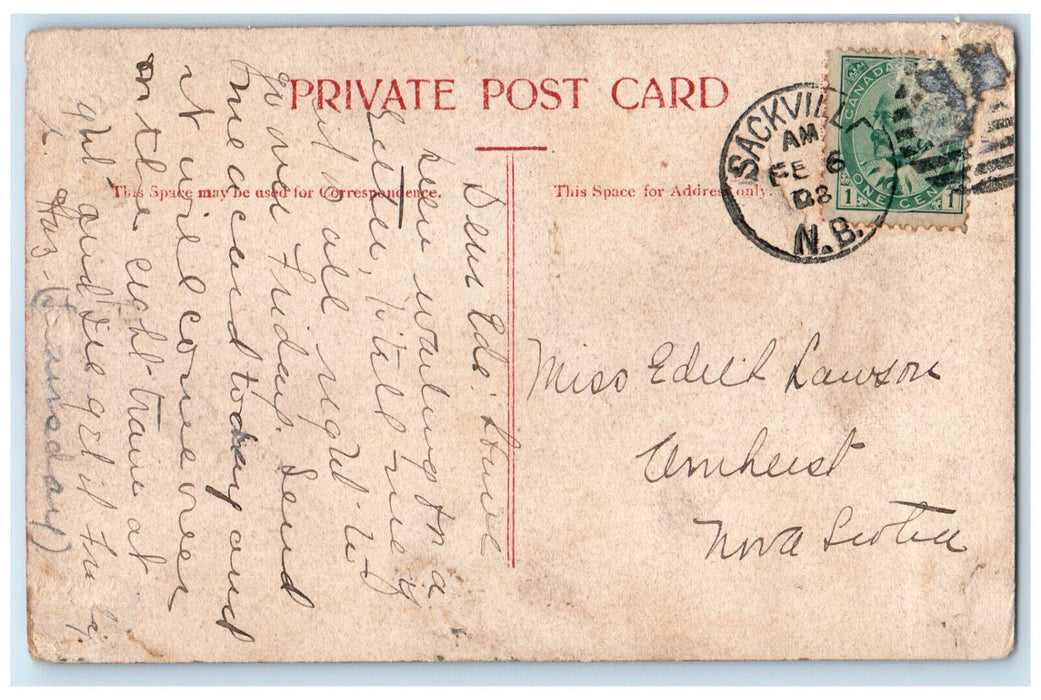 PRIVATE POST CARD
This Space may be used for Correspondence.
This Space for Address only.
SACKVILLE
AM
FE 6
08
N.B.
CANADA
1 ONE CENT 1
Miss Edith Lawson
Amherst
Nova Scotia
Dear Ede. Have
been waiting for a
letter, tell me
it all right
over Friday. Send
me a card today and
I will come over
on the eight train at
and see
(Tuesday)